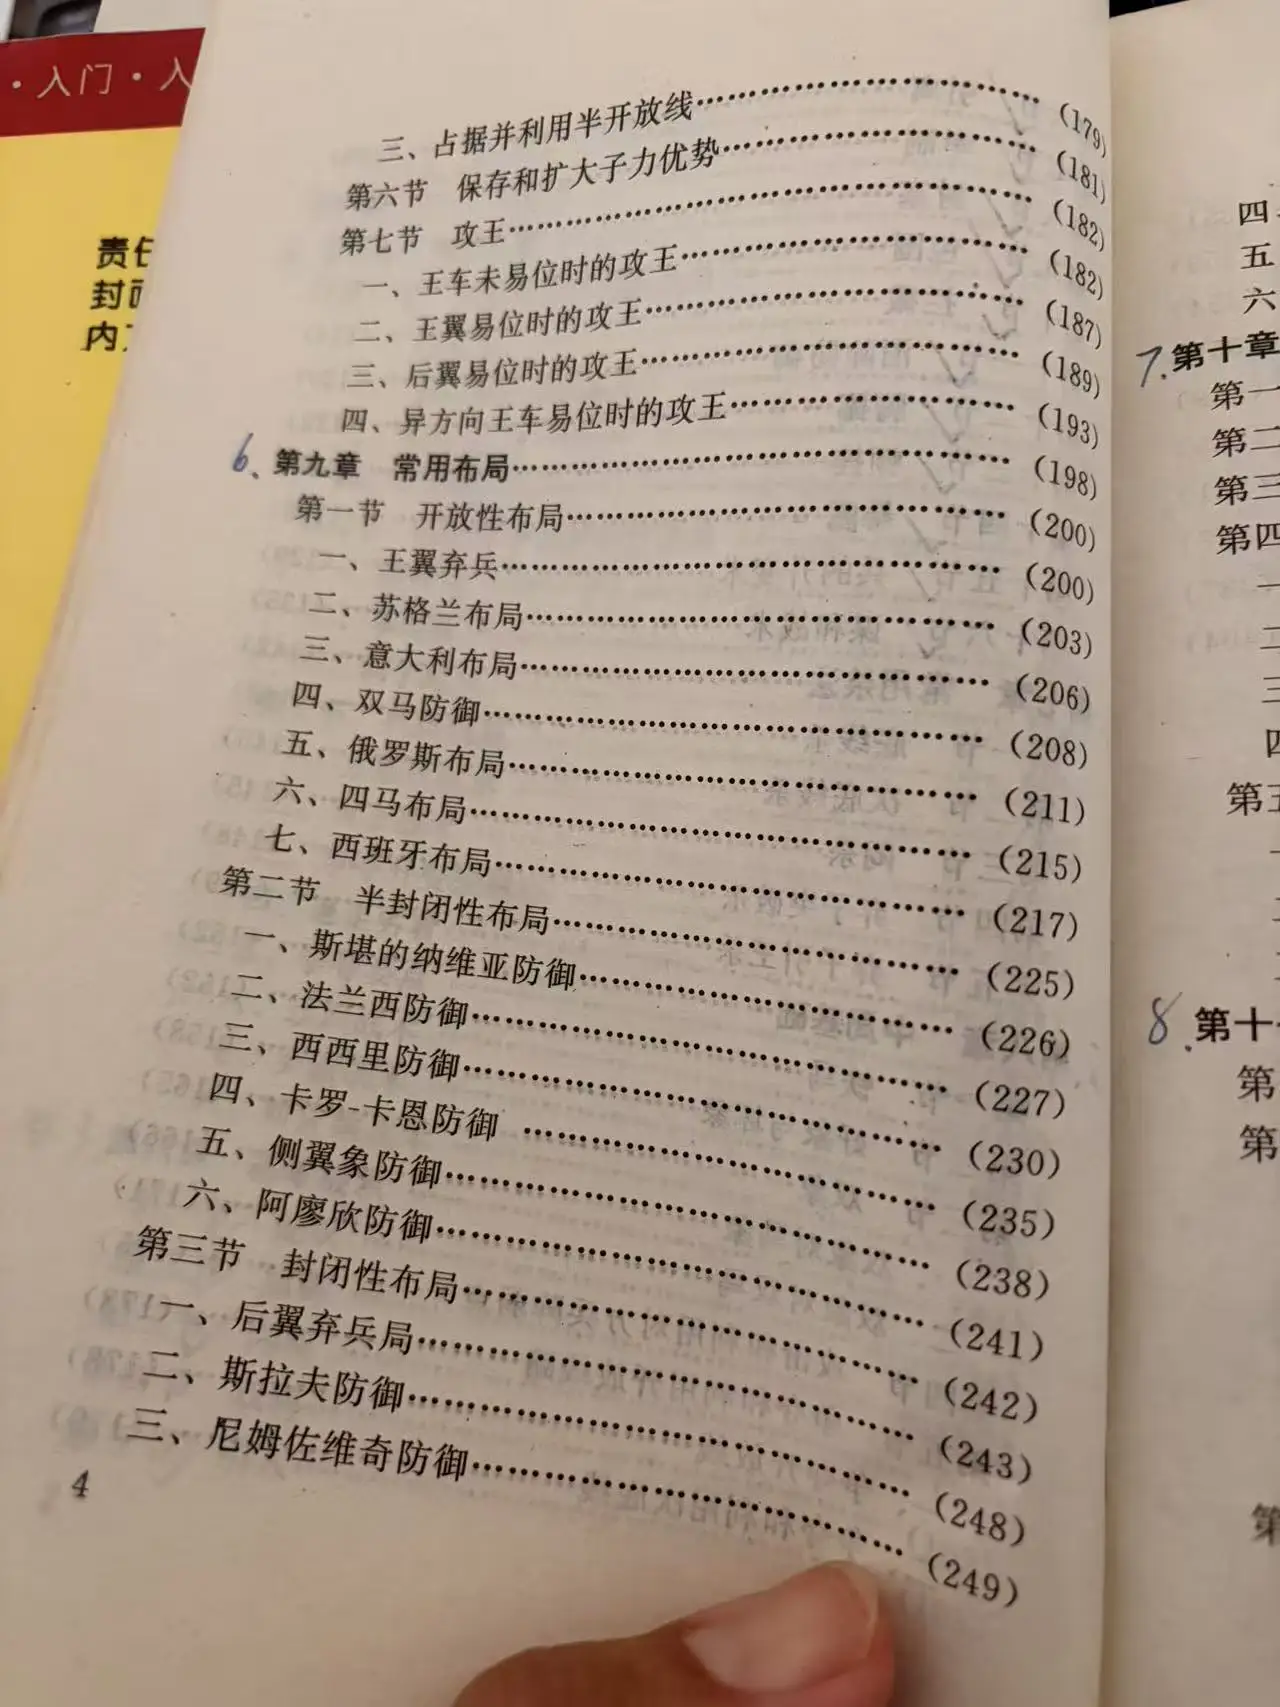 ·入门·入
责任
封面
内
三、占据并利用半开放线……………………(179)
第六节 保存和扩大子力优势……………………(181)
第七节 攻王……………………(182)
一、王车未易位时的攻王……………………(182)
二、王翼易位时的攻王……………………(187)
三、后翼易位时的攻王……………………(189)
四、异方向王车易位时的攻王……………………(193)
6、第九章 常用布局……………………(198)
第一节 开放性布局……………………(200)
一、王翼弃兵……………………(200)
二、苏格兰布局……………………(203)
三、意大利布局……………………(206)
四、双马防御……………………(208)
五、俄罗斯布局……………………(211)
六、四马布局……………………(215)
七、西班牙布局……………………(217)
第二节 半封闭性布局……………………(225)
一、斯堪的纳维亚防御……………………(226)
二、法兰西防御……………………(227)
三、西西里防御……………………(230)
四、卡罗-卡恩防御……………………(235)
五、侧翼象防御……………………(238)
六、阿廖欣防御……………………(241)
第三节 封闭性布局……………………(242)
一、后翼弃兵局……………………(243)
二、斯拉夫防御……………………(248)
三、尼姆佐维奇防御……………………(249)
4
四
五
六
7.第十章
第一
第二
第三
第四
一
二
三
四
第五
8.第十
第
第
第